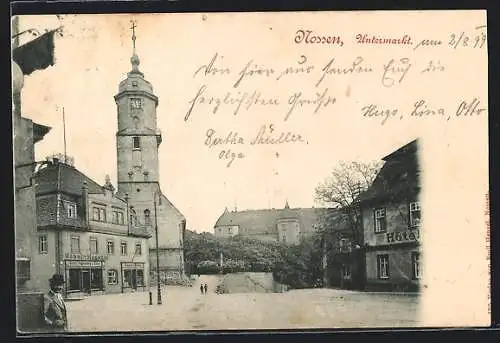 Nossen, Untermarkt. am 2/8.99
Von hier aus senden Euch die
herzlichsten Grüße
Hugo, Lina, Otto
Bertha Müller,
Olga
HOTE